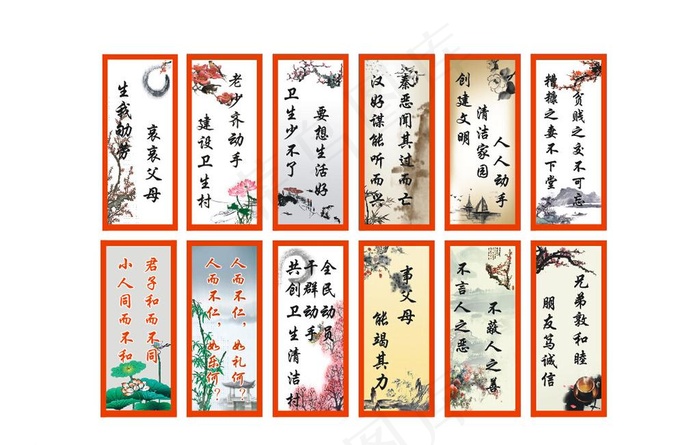 哀哀父母
生我劬劳
老少齐动手
建设卫生村
要想生活好
卫生少不了
秦恶闻其过而亡
汉好谋能听而兴
人人动手
清洁家园
创建文明
贫贱之交不可忘
糟糠之妻不下堂
君子和而不同
小人同而不和
人而不仁，如礼何？
人而不仁，如乐何？
全民动员
干群动手
共创卫生清洁村
事父母
能竭其力
不蔽人之善
不言人之恶
兄弟敦和睦
朋友笃诚信